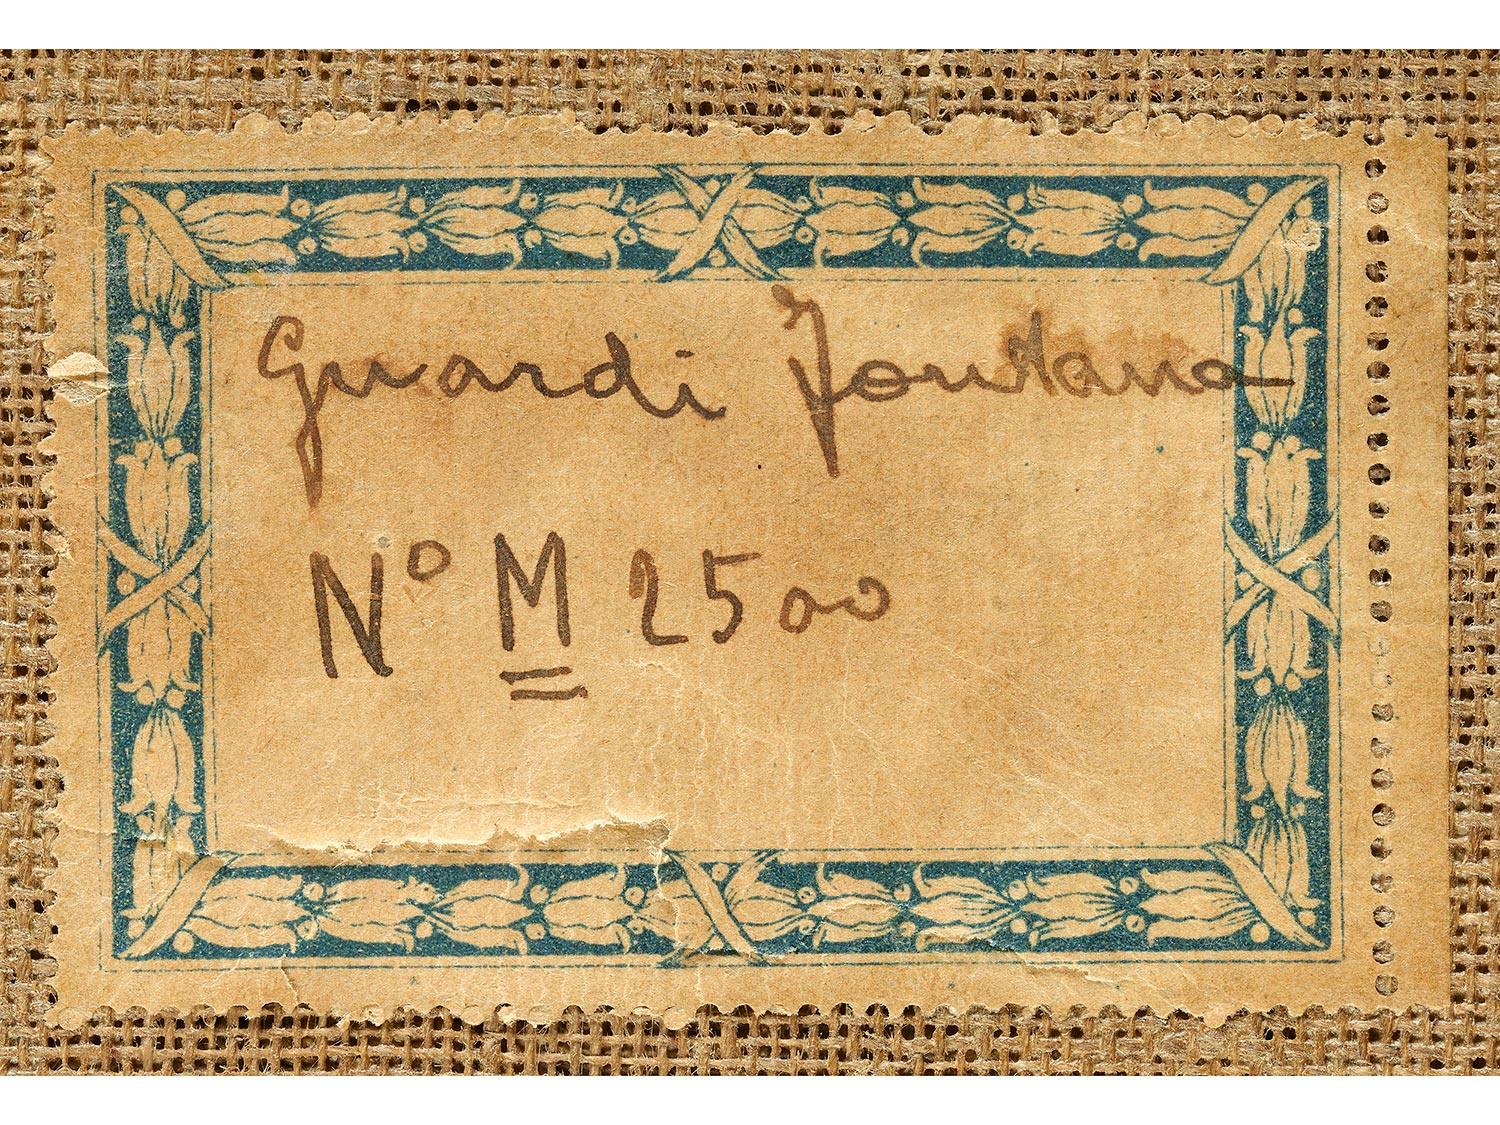 Guardi Fontana
Nº M 2500